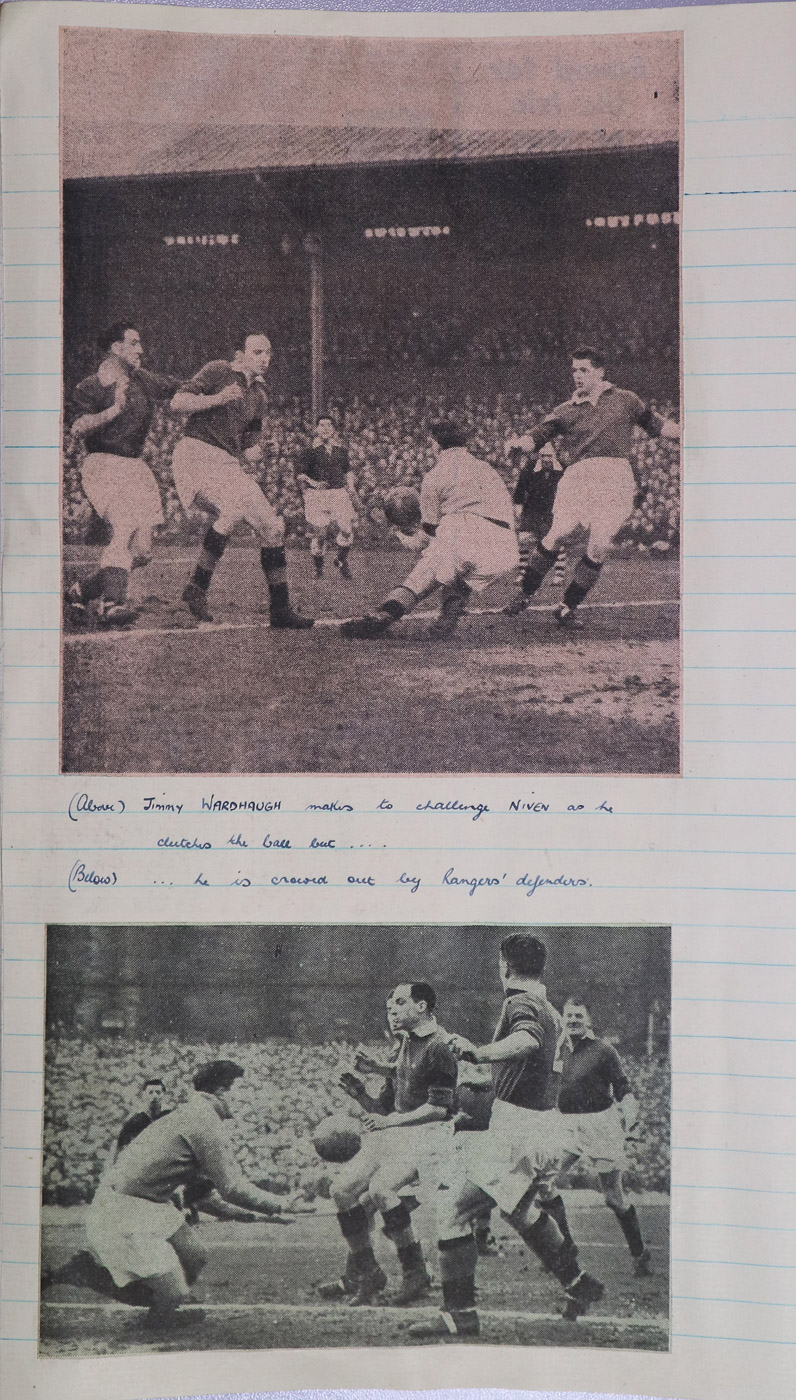 (Above) Jimmy WARDHAUGH makes to challenge NIVEN as he
clutches the ball but ....
(Below) ... he is crowded out by Rangers' defenders.